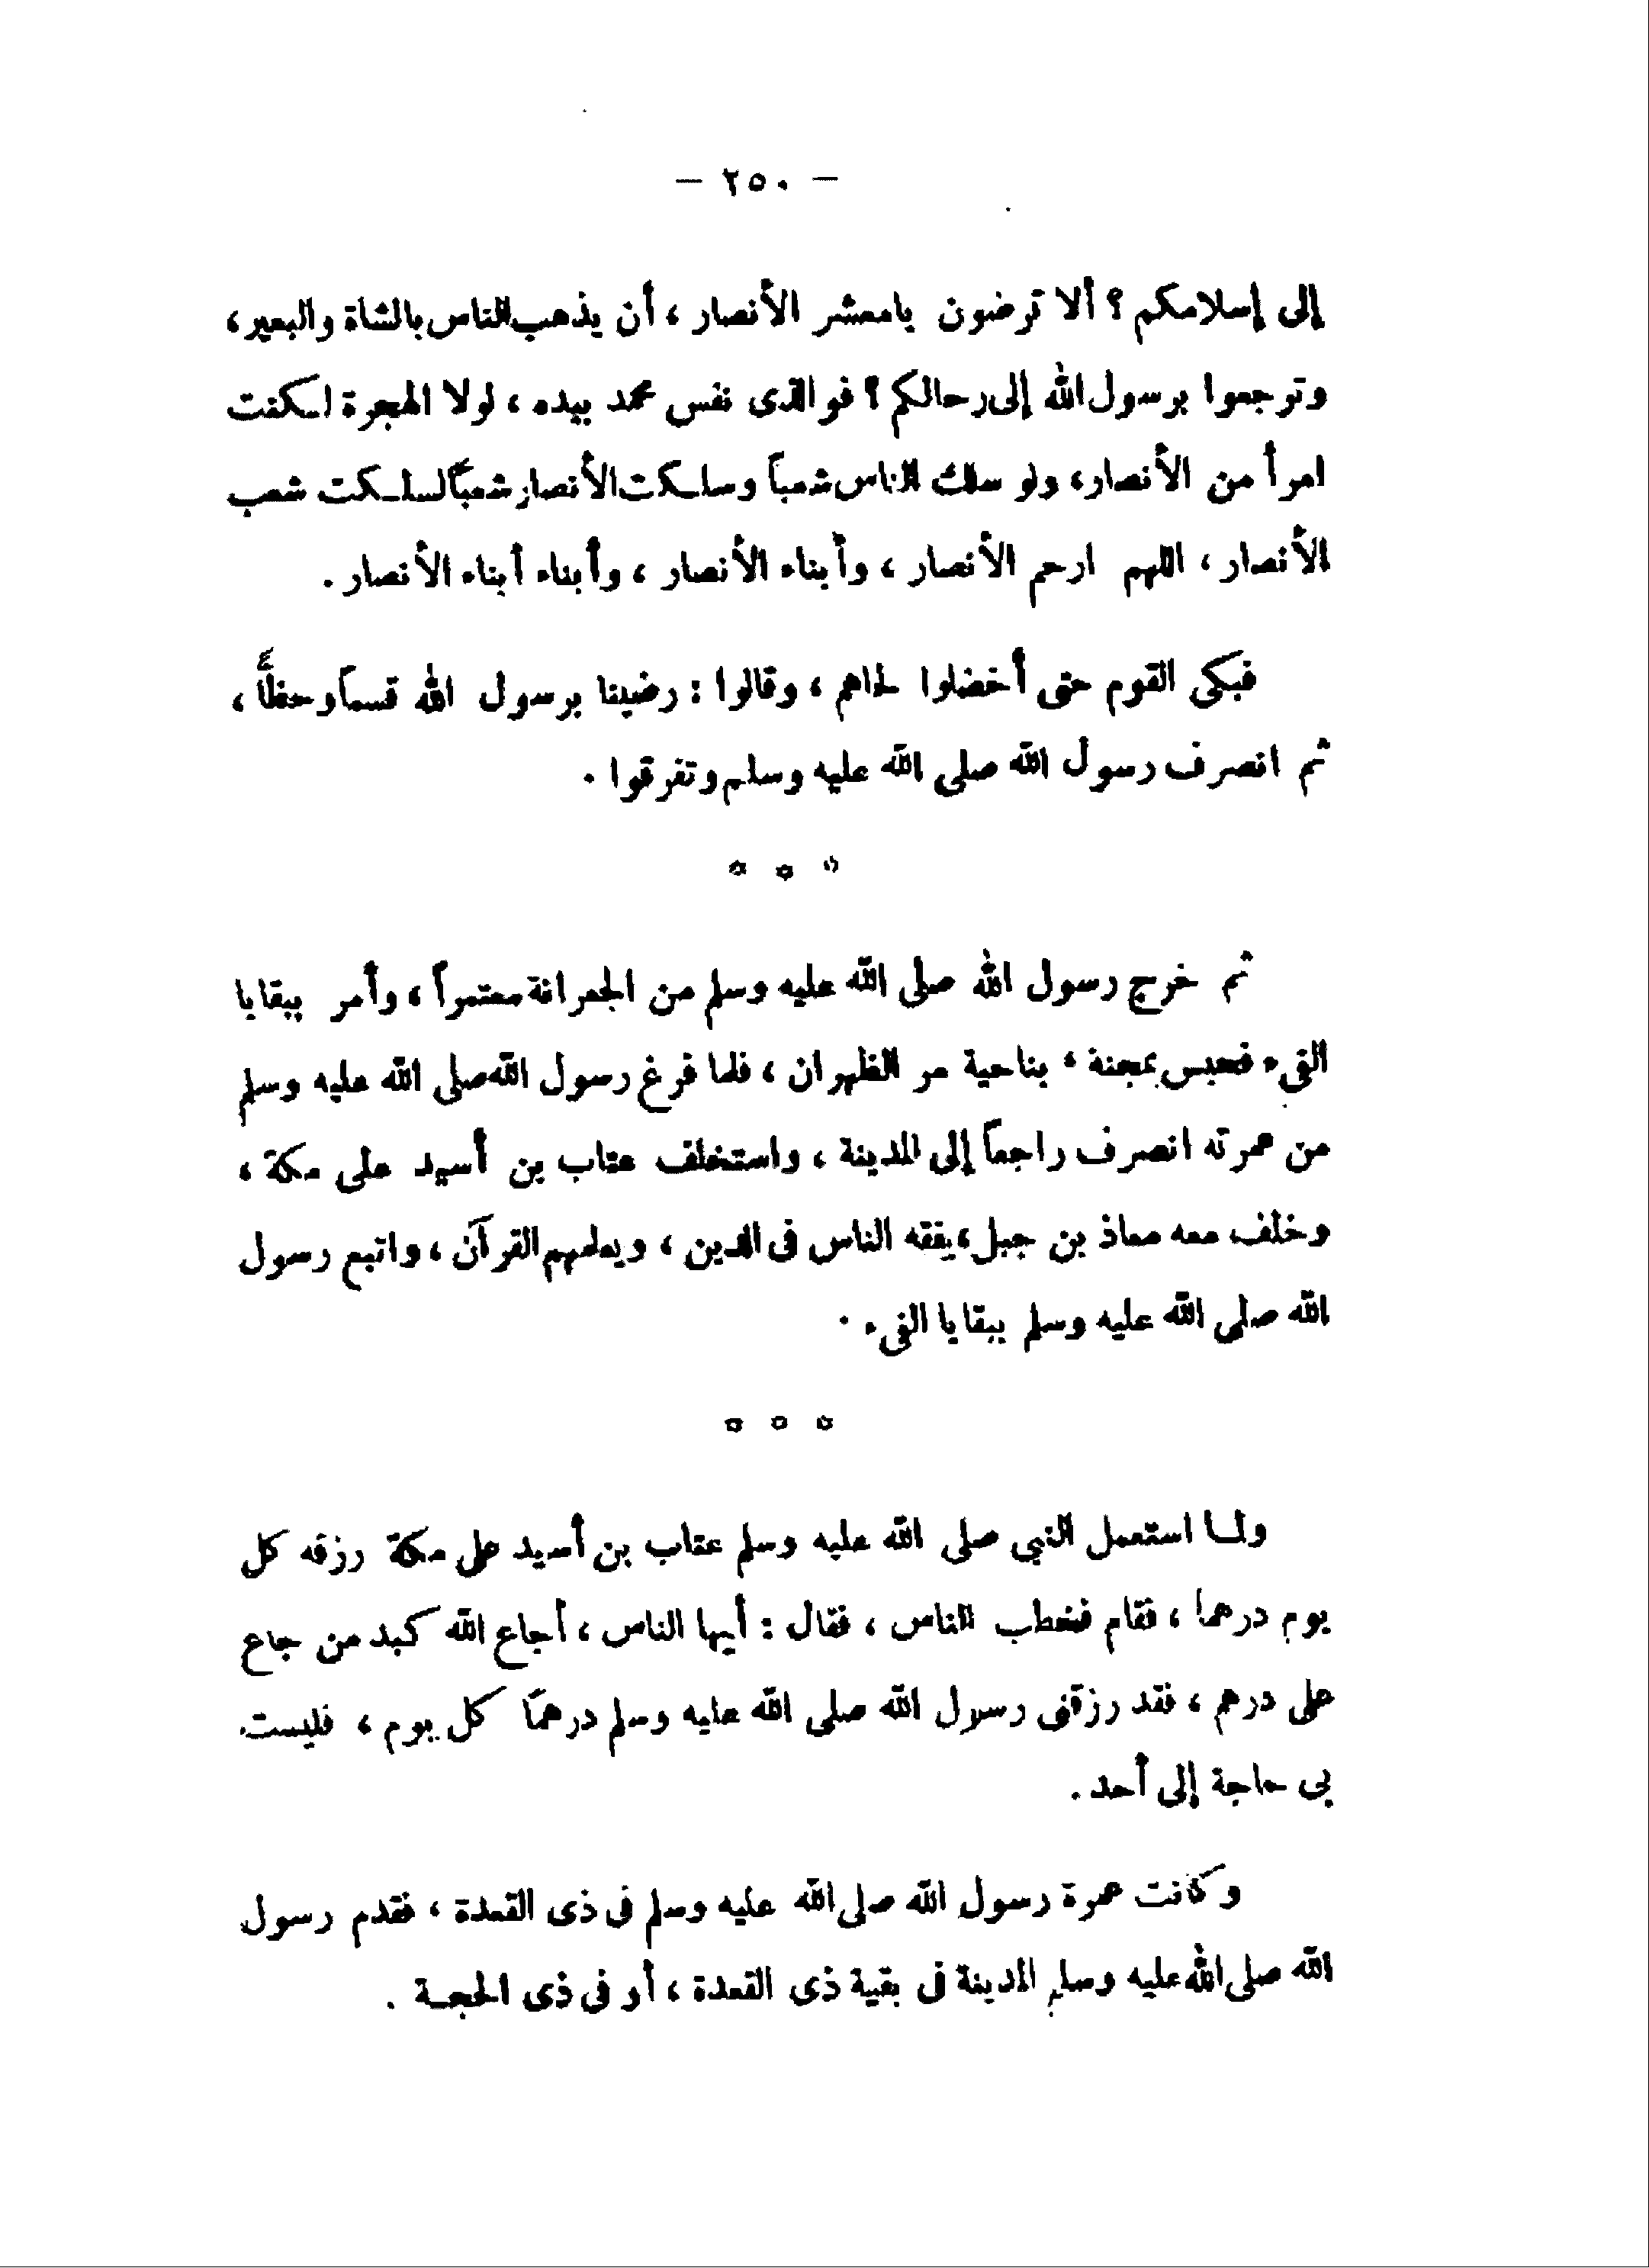 — ٢٥٠ —
إلى إسلامكم ؟ ألا ترضون يا معشر الأنصار ، أن يذهب الناس بالشاة والبعير ،
وترجعوا برسول الله إلى رحالكم ؟ فوالذى نفس محمد بيده ، لولا الهجرة لكنت
امرأ من الأنصار ، ولو سلك الناس شعباً وسلكت الأنصار شعباً لسلكت شعب
الأنصار ، اللهم ارحم الأنصار ، وأبناء الأنصار ، وأبناء أبناء الأنصار .
فبكى القوم حتى أخضلوا لحاهم ، وقالوا : رضينا برسول الله قسماً وحظاً ،
ثم انصرف رسول الله صلى الله عليه وسلم وتفرقوا .
* * *
ثم خرج رسول الله صلى الله عليه وسلم من الجعرانة معتمراً ، وأمر ببقايا
الفىء فحبس بمجنة ، بناحية مر الظهران ، فلما فرغ رسول الله صلى الله عليه وسلم
من عمرته انصرف راجعاً إلى المدينة ، واستخلف عتاب بن أسيد على مكة ،
وخلف معه معاذ بن جبل ، يفقه الناس فى الدين ، ويعلمهم القرآن ، واتبع رسول
الله صلى الله عليه وسلم ببقايا الفىء .
* * *
ولما استعمل النبى صلى الله عليه وسلم عتاب بن أسيد على مكة رزقه كل
يوم درهما ، فقام فخطب الناس ، فقال : أيها الناس ، أجاع الله كبد من جاع
على درهم ، فقد رزقنى رسول الله صلى الله عليه وسلم درهماً كل يوم ، فليست
بى حاجة إلى أحد .
وكانت عمرة رسول الله صلى الله عليه وسلم فى ذى القعدة ، فقدم رسول
الله صلى الله عليه وسلم المدينة فى بقية ذى القعدة ، أو فى ذى الحجة .